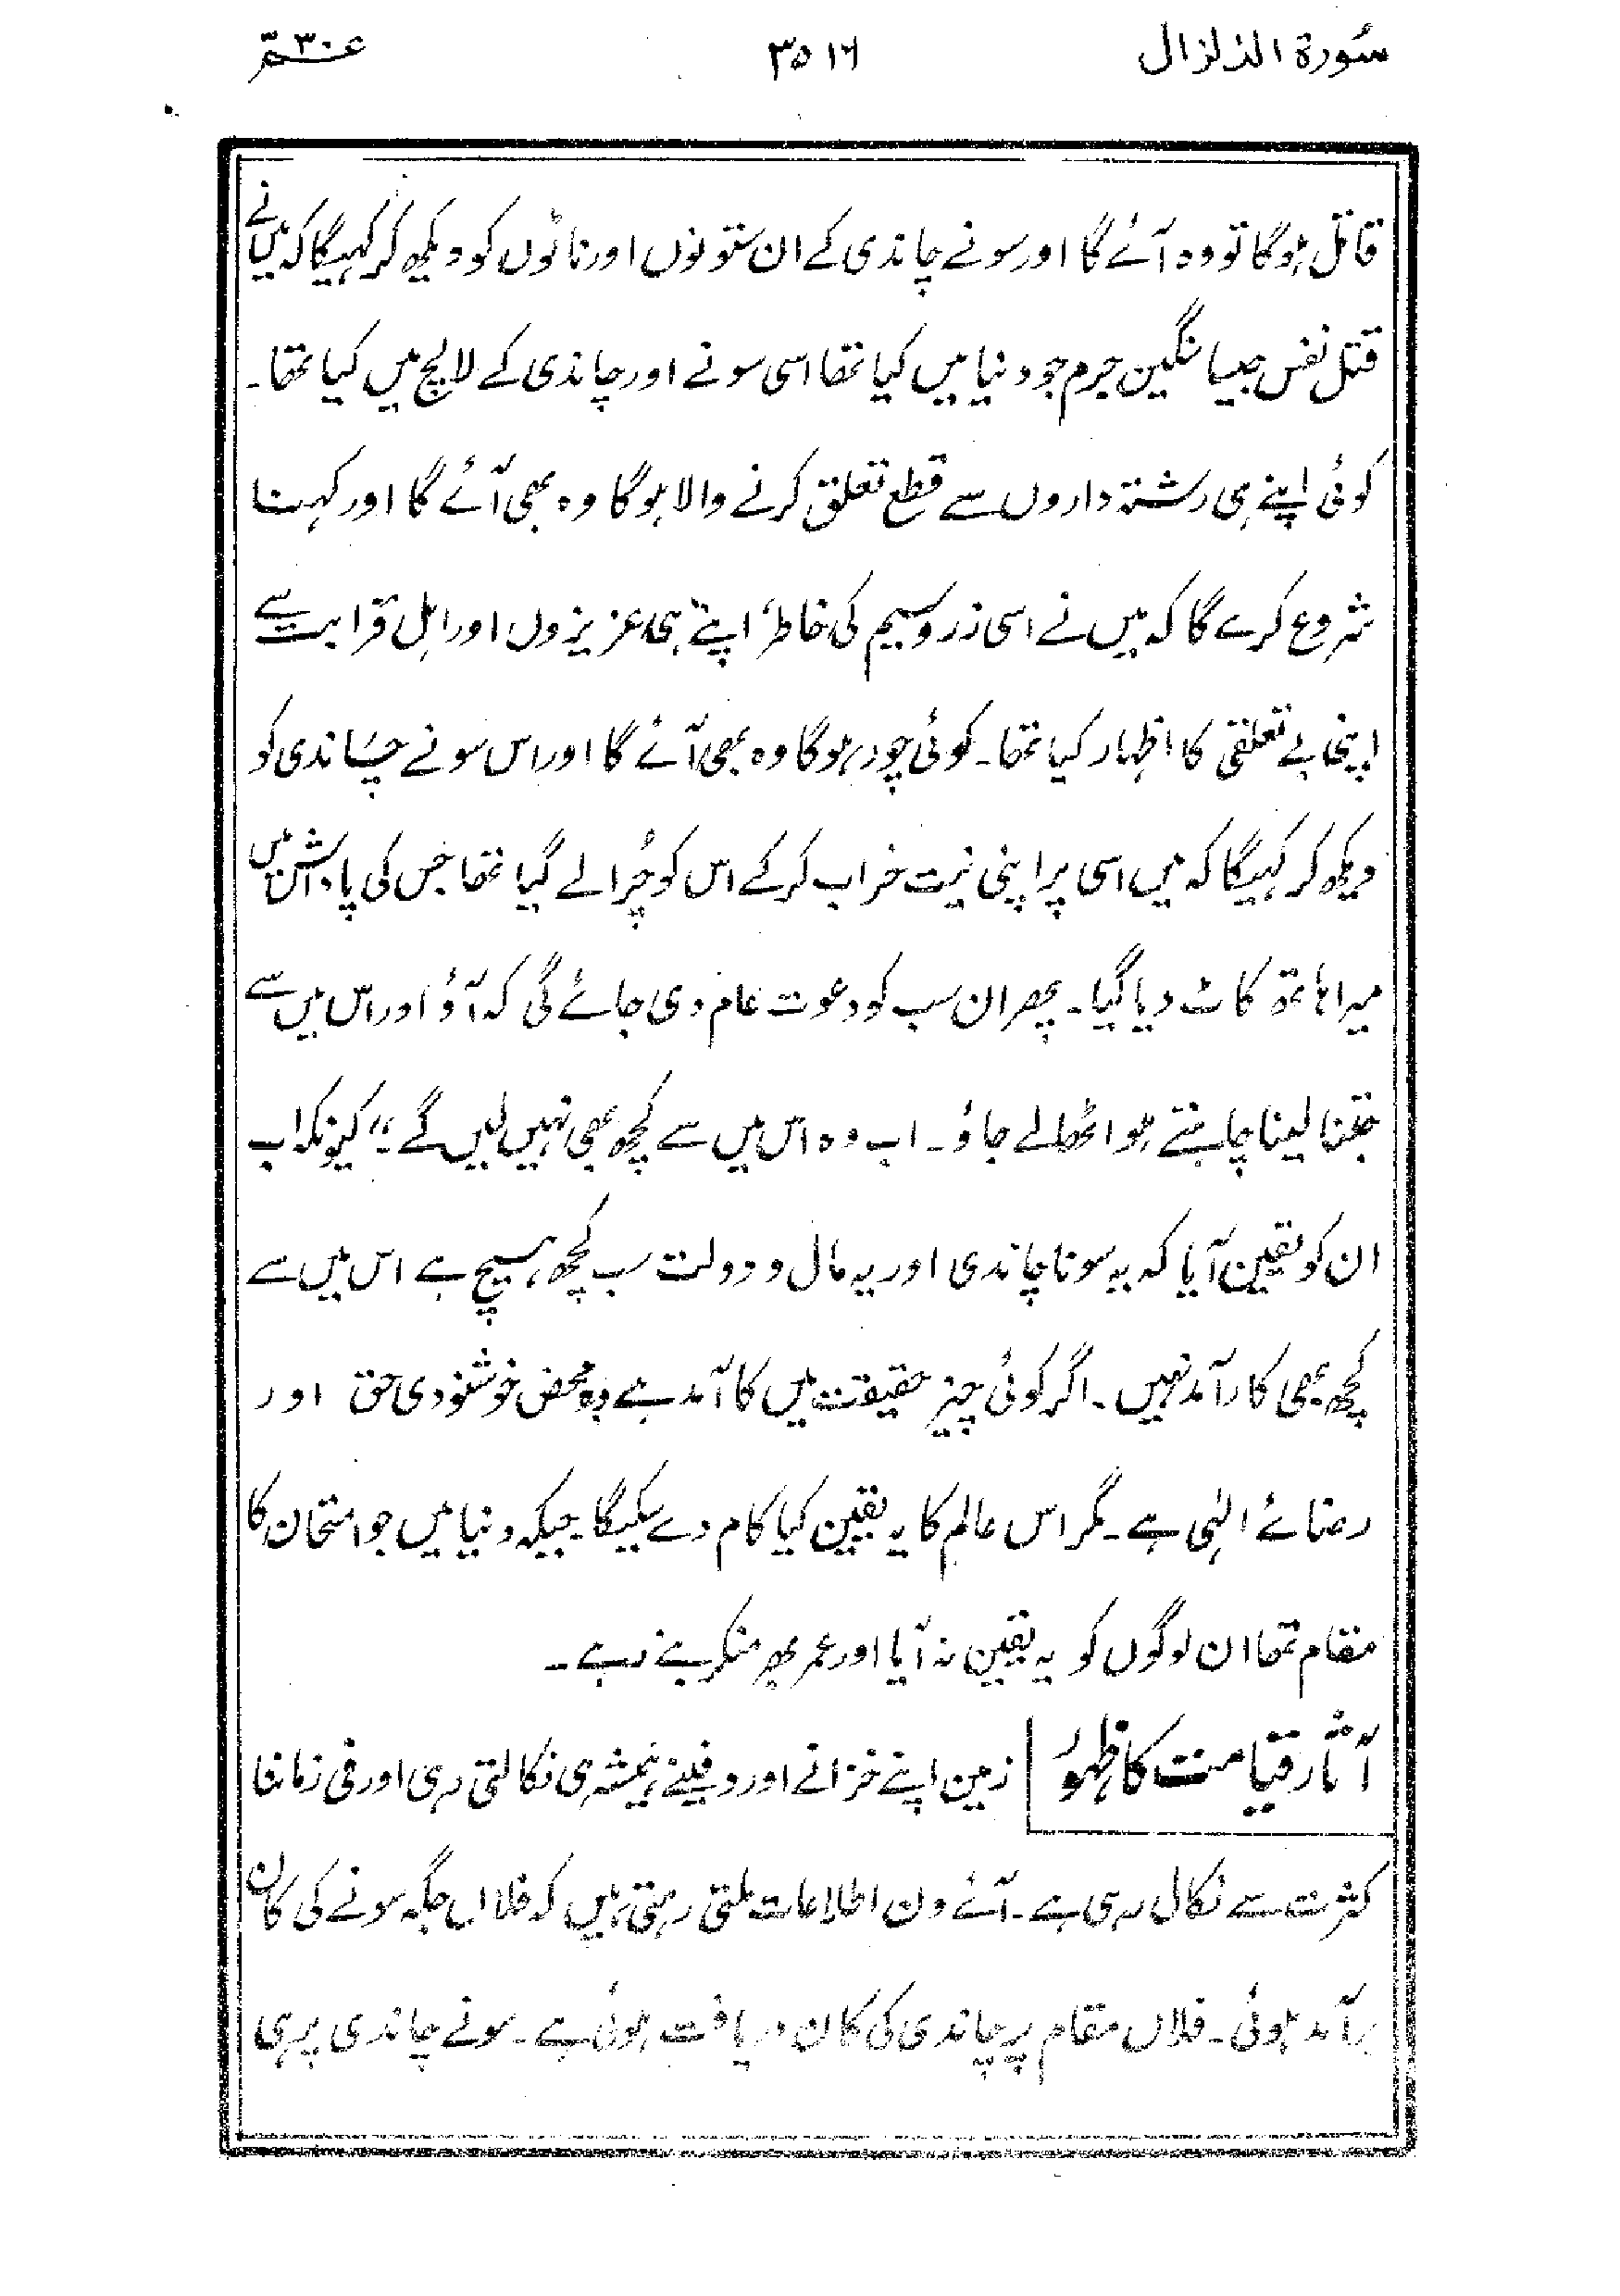 سُورة الزلزال ۳۵۱۶ عم ۳۰
قاتل ہوگا تو وہ آئے گا اور سونے چاندی کے ان ستونوں اور ناٹوں کو دیکھ کر کہیگا کہ میں نے
قتل نفس جیسا سنگین جرم جو دنیا میں کیا تھا اسی سونے اور چاندی کے لالچ میں کیا تھا۔
کوئی اپنے ہی رشتہ داروں سے قطع تعلق کرنے والا ہوگا وہ بھی آئے گا اور کہنا
شروع کرے گا کہ میں نے اسی زر و سیم کی خاطر اپنے ہی عزیزوں اور اہل قرابت سے
اپنی بے تعلقی کا اظہار کیا تھا۔ کوئی چور ہوگا وہ بھی آئے گا اور اس سونے چاندی کو
دیکھ کر کہیگا کہ میں اسی پر اپنی نیت خراب کرکے اس کو چُرا لے گیا تھا جس کی پاداش میں
میرا ہاتھ کاٹ دیا گیا۔ پھر ان سب کو دعوت عام دی جائے گی کہ آؤ اور اس میں سے
جتنا لینا چاہتے ہو اٹھا لے جاؤ۔ اب وہ اس میں سے کچھ بھی نہیں لیں گے،، کیونکہ اب
ان کو یقین آیا کہ یہ سونا چاندی اور یہ مال و دولت سب کچھ ہیچ ہے اس میں سے
کچھ بھی کارآمد نہیں۔ اگر کوئی چیز حقیقت میں کا آمد ہے وہ محض خوشنودی حق اور
رضائے الٰہی ہے۔ مگر اس عالم کا یہ یقین کیا کام دے سکیگا۔ جبکہ دنیا میں جو امتحان کا
مقام تھا ان لوگوں کو یہ یقین نہ آیا اور عمر بھر منکر بنے رہے۔
آثار قیامت کا ظہور زمین اپنے خزانے اور دفینے ہمیشہ ہی نکالتی رہی اور فی زماننا
کثرت سے نکال رہی ہے۔ آئے دن اطلاعات ملتی رہتی ہیں کہ فلاں جگہ سونے کی کان
برآمد ہوئی۔ فلاں مقام پر چاندی کی کان دریافت ہوئی ہے۔ سونے چاندی پر ہی